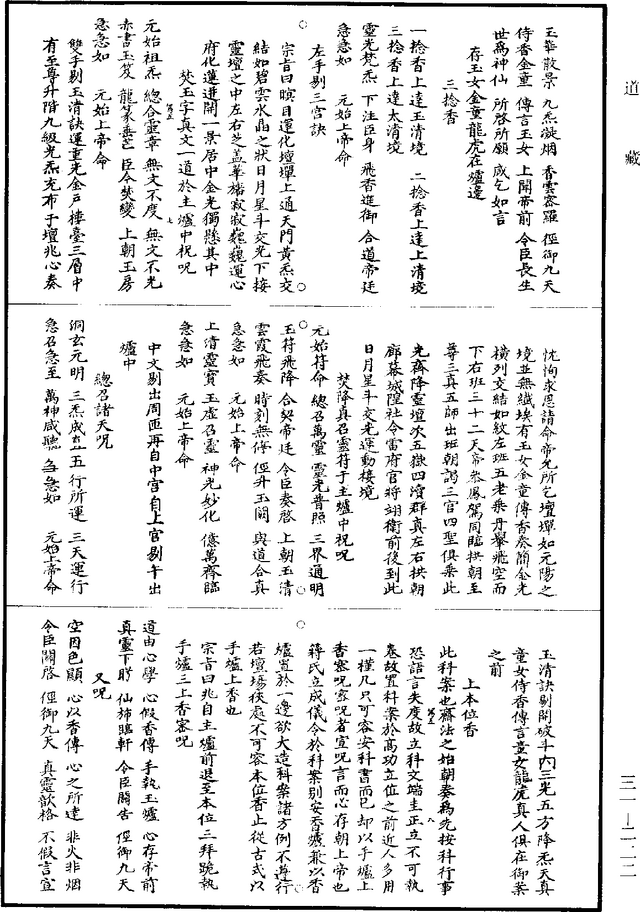 道藏
玉華散景　九炁凝烟　香雲密羅　俓御九天
侍香金童　傳言玉女　上聞帝前　令臣長生
世為神仙　所啓所願　咸乞如言
存玉女金童龍虎在爐邊
三捻香
一捻香上達玉清境　二捻香上達上清境
三捻香上達太清境
靈光梵炁　下注臣身　飛香進御　合道帝廷
急急如　元始上帝命
左手剔三宫訣
宗旨曰瞑目運化壇墠上通天門黄炁交
結如碧雲水晶之狀日月星斗交光下接
靈壇之中左右芝盖華旛寂寂巍巍運心
府化蓮迸開一景居中金光獨懸其中
焚玉字真文一道於主爐中祝呪
元始祖炁　總合靈章　無文不度　無文不光
赤書玉笈　龍篆垂芒　臣今焚燮　上朝玉房
急急如　元始上帝命
雙手剔玉清訣運重光金戶樓臺三層中
有至尊升階九級光炁充布于壇兆心奏
忱恂求恩請命帝允所乞壇墠如元陽之
境並無纖埃有玉女金童傳香奏簡金光
橫列交結如紋左班五老乘丹轝飛空而
下右班三十二天帝叅鳳駕同臨拱朝至
尊三真五師出班朝謁三官四聖俱乘此
光齊降靈壇次五嶽四瀆群真左右拱朝
廊幕城隍社令雷府官將翊衛前後到此
日月星斗交光運動接境
焚降真召靈符于主爐中祝呪
元始符命　總召萬靈　靈光普照　三界通明
玉符飛降　合契帝廷　令臣奏啓　上朝玉清
雲霞飛奏　時刻無停　俓升玉闕　與道合真
急急如　元始上帝命
上清靈寶　玉虚召靈　神光妙化　億萬齊臨
急急如　元始上帝命
中文剔出周匝再自中宮自上官剔午出
爐中
總召諸天呪
洞玄元明　三炁成立　五行所運　三天運行
急召急至　萬神咸聽　急急如　元始上帝命
玉清訣剔開破斗　三光五方降炁天真
童女侍香傳言童女龍虎真人俱在御案
之前
上本位香
此科案也齋法之始朝奏為先按科行事
恐語言失度故立科文端圭正立不可執
卷故置科案於高功立位之前近人多用
一欞几只可容安科書而已却以手爐上
香密呪密呪者宣呪言而心存朝上帝也
蔣氏立成儀令於科案别安香爐兼以香
爐置於一邊欲大造科案諸方例不遵行
若壇場狹處不可容本位香止從古式以
手爐上香也
宗旨曰兆自主爐前退至本位三拜跪執
手爐三上香密呪
道由心學　心假香傳　手執玉爐　心存帝前
真靈下盻　仙斾臨軒　令臣關告　俓御九天
又呪
空因色顯　心以香傳　心之所達　非火非烟
令臣關啓　俓御九天　真靈歆格　不假言宣
三一—二一二